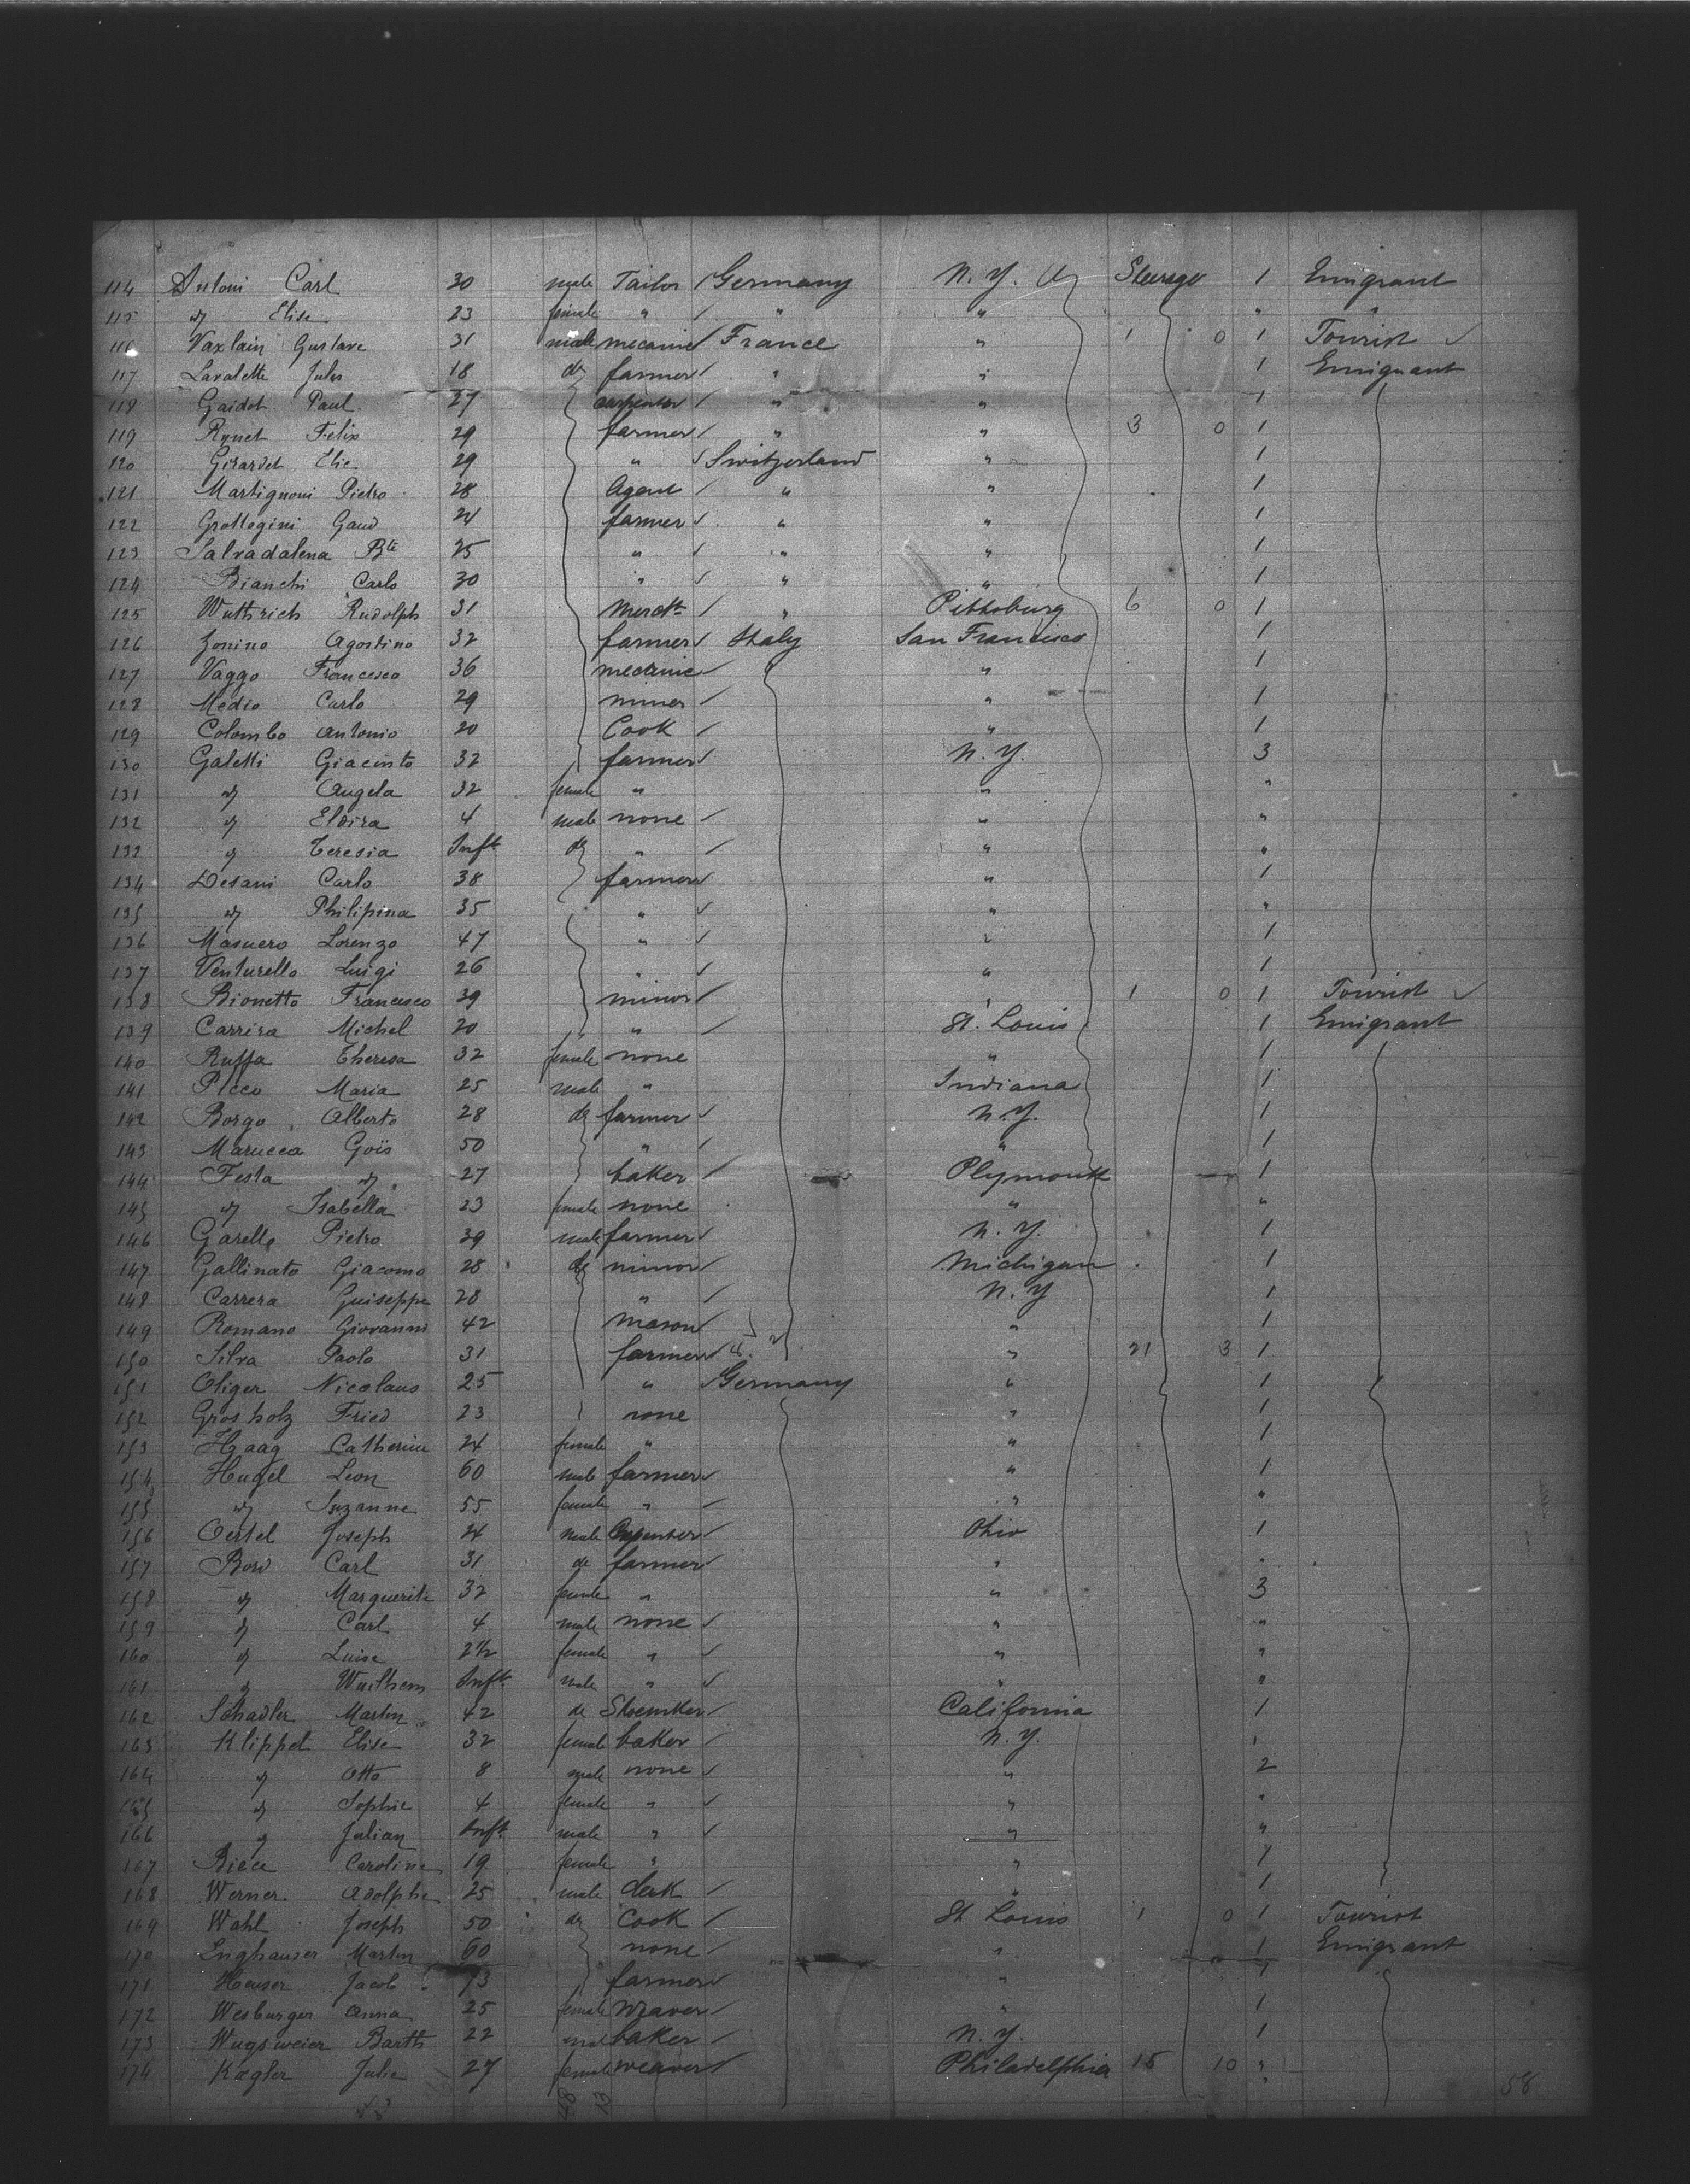 114 Antoni Carl 30 male Tailor Germany N.Y. Steerage 1 Emigrant
115 dy Elise 23 female " " " " "
116 Vaxlain Gustave 31 male mecanic France " 1 0 1 Tourist
117 Lavalette Jules 18 do farmer " " 1 Emigrant
118 Gaidot Paul 27 carpenter " " 1
119 Rynet Felix 29 farmer " " 3 0 1
120 Girardet Elie 29 " Switzerland " 1
121 Martignoni Pietro 28 Agent " " 1
122 Grottogini Gaud 24 farmer " " 1
123 Salvadalena Bte 25 " " " 1
124 Bianchi Carlo 30 " " " 1
125 Wuthrich Rudolph 31 Merdt " Pittsburg 6 0 1
126 Zonino Agostino 32 farmer Italy San Francisco 1
127 Vaggo Francesco 36 mecanic " 1
128 Medio Carlo 29 miner " 1
129 Colombo Antonio 20 Cook " 1
130 Galetti Giacinto 32 farmer N.Y. 3
131 dy Angela 32 female " " "
132 dy Elvira 4 male none " "
133 dy Teresia Inft do " " "
134 Desani Carlo 38 farmer " 1
135 dy Philipina 35 " " "
136 Masuero Lorenzo 47 " " 1
137 Venturello Luigi 26 " " 1
138 Bionetto Francesco 39 minor " 1 0 1 Tourist
139 Carrira Michel 20 " St. Louis 1 Emigrant
140 Ruffa Theresa 32 female none " 1
141 Picco Maria 25 male " Indiana 1
142 Borgo Alberto 28 do farmer N.Y. 1
143 Marucca Gois 50 " " 1
144 Festa dy 27 baker Plymouth 1
145 dy Isabella 23 female none " "
146 Garello Pietro 39 male farmer N.Y. 1
147 Gallinato Giacomo 28 do minor Michigan 1
148 Carrera Guiseppe 28 " N.Y 1
149 Romano Giovanni 42 Mason " 1
150 Silva Paolo 31 farmer " 21 3 1
151 Oliger Nicolaus 25 " Germany " 1
152 Grosholz Fried 23 none " 1
153 Haag Catherine 24 female " " 1
154 Hugel Leon 60 male farmer " 1
155 dy Suzanne 55 female " " "
156 Oertel Joseph 24 male Carpenter Ohio 1
157 Bord Carl 31 do farmer " "
158 dy Marguerite 32 female " " 3
159 dy Carl 4 male none " "
160 dy Luise 2½ female " " "
161 dy Inft male " " "
162 Schadler Martin 42 do Shoemker California 1
163 Klippel Elise 32 female baker N.Y. "
164 dy Otto 8 male none " 2
165 dy Sophie 4 female " " "
166 dy Julian Inft male " " "
167 Caroline 19 female " " 1
168 Werner Adolphe 25 male clerk " 1
169 Wahl Joseph 50 do Cook St Louis 1 0 1 Tourist
170 Inghauser Martin 60 none " 1 Emigrant
171 Heuser Jacob farmer " 1
172 Wesburger Anna 25 female weaver " 1
173 Wugsweier Barth 22 male baker N.Y. 1
174 Kegler Julie 27 female weaver Philadelphia 15 10 "
58